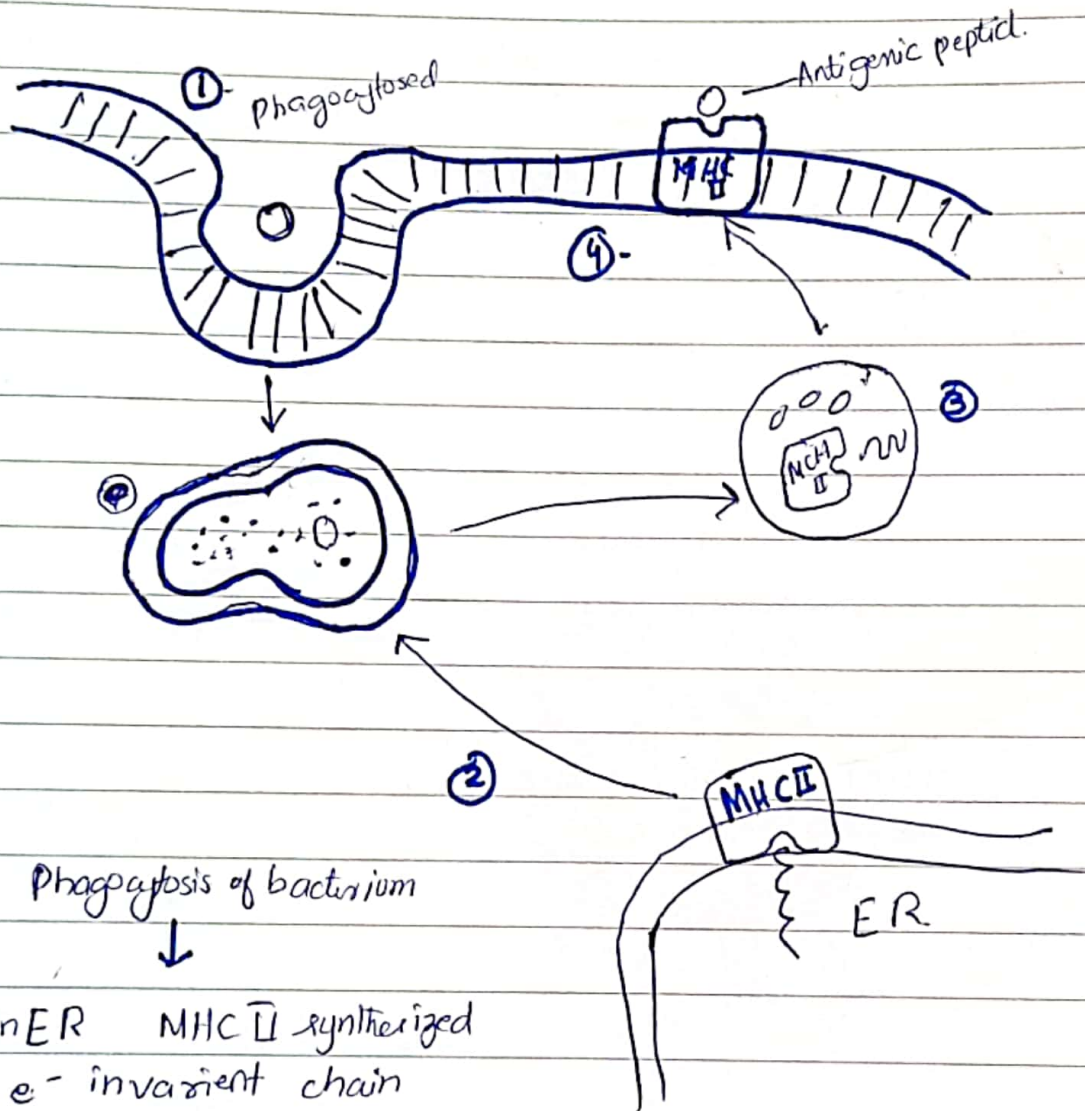 ① - Phagocytosed
Antigenic peptid.
MHC
II
④ -
③
MCH
II
②
MHC II
ER
Phagocytosis of bacterium
↓
nER MHC II synthesized
e- invarient chain